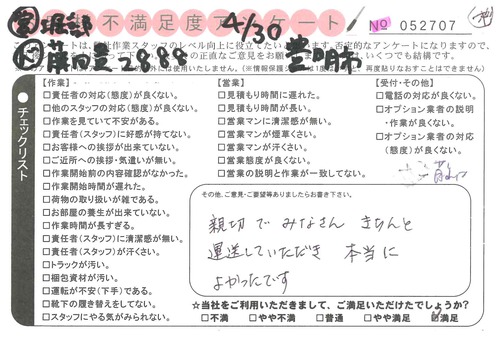 不満足度アンケート
4/30
No 052707
2888
豊明市
チェックリスト
【作業】
□責任者の対応(態度)が良くない。
□他のスタッフの対応(態度)が良くない。
□作業を見ていて不安がある。
□責任者(スタッフ)に好感が持てない。
□お客様への挨拶が出来ていない。
□ご近所への挨拶・気遣いが無い。
□作業開始前の内容確認がなかった。
□作業開始時間が遅れた。
□荷物の取り扱いが雑である。
□お部屋の養生が出来ていない。
□作業時間が長すぎる。
□責任者(スタッフ)に清潔感が無い。
□責任者(スタッフ)が汗くさい。
□トラックが汚い。
□梱包資材が汚い。
□運転が不安(下手)である。
□靴下の履き替えをしてない。
□スタッフにやる気がみられない。
【営業】
□見積もり時間に遅れた。
□見積もり時間が長い。
□営業マンに清潔感が無い。
□営業マンが煙草くさい。
□営業マンが汗くさい。
□営業態度が良くない。
□営業の説明と作業が一致してない。
【受付・その他】
□電話の対応が良くない。
□オプション業者の説明・作業が良くない。
□オプション業者の対応(態度)が良くない。
その他、ご意見・ご要望等ありましたらお書き下さい。
親切で みなさん きちんと
運送していただき 本当に
よかったです
☆当社をご利用いただきまして、ご満足いただけたでしょうか?
□不満 □やや不満 □普通 □やや満足 ☑満足